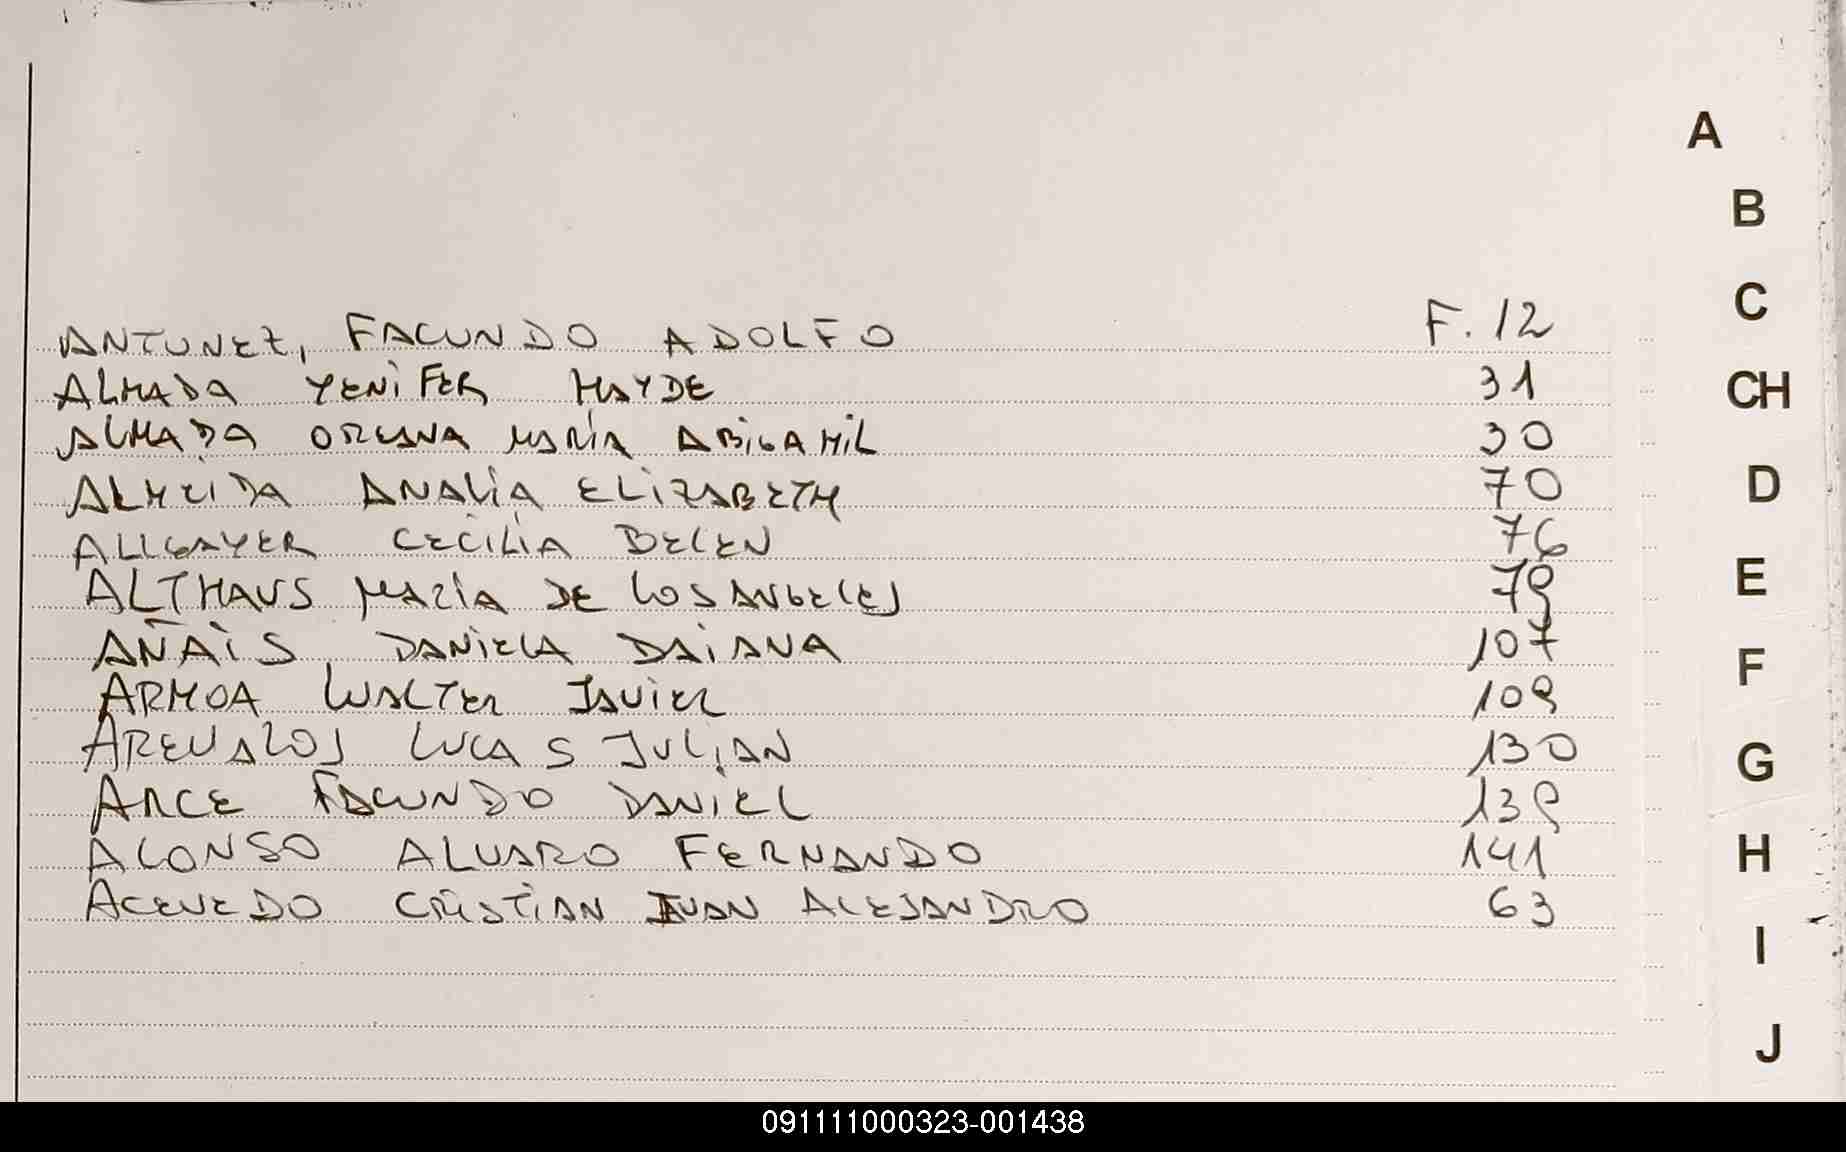 A
B
C
ANTUNEZ, FACUNDO ADOLFO F. 12
ALMADA YENIFER HAYDE 31
CH
ALMADA ORIANA MARÍA ABIGAHIL 30
ALMEIDA ANALÍA ELIZABETH 70
D
ALLGAYER CECILIA BELEN 76
ALTHAUS MARÍA DE LOS ANGELES 79
E
AÑAIS, DANIELA DAIANA 107
F
ARMOA WALTER JAVIER 109
AREVALOS LUCAS JULIAN 130
G
ARCE FACUNDO DANIEL 139
ALONSO ALVARO FERNANDO 141
H
ACEVEDO CRISTIAN IVAN ALEJANDRO 63
I
J
091111000323-001438